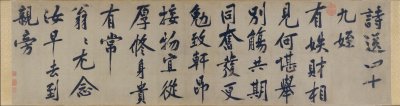 詩送四十
九姪
有財相
見何堪舉
別觴共期
同奮發更
勉致軒昂
接物宜從
厚修身貴
有常
翁〻尤念
汝早去到
親旁